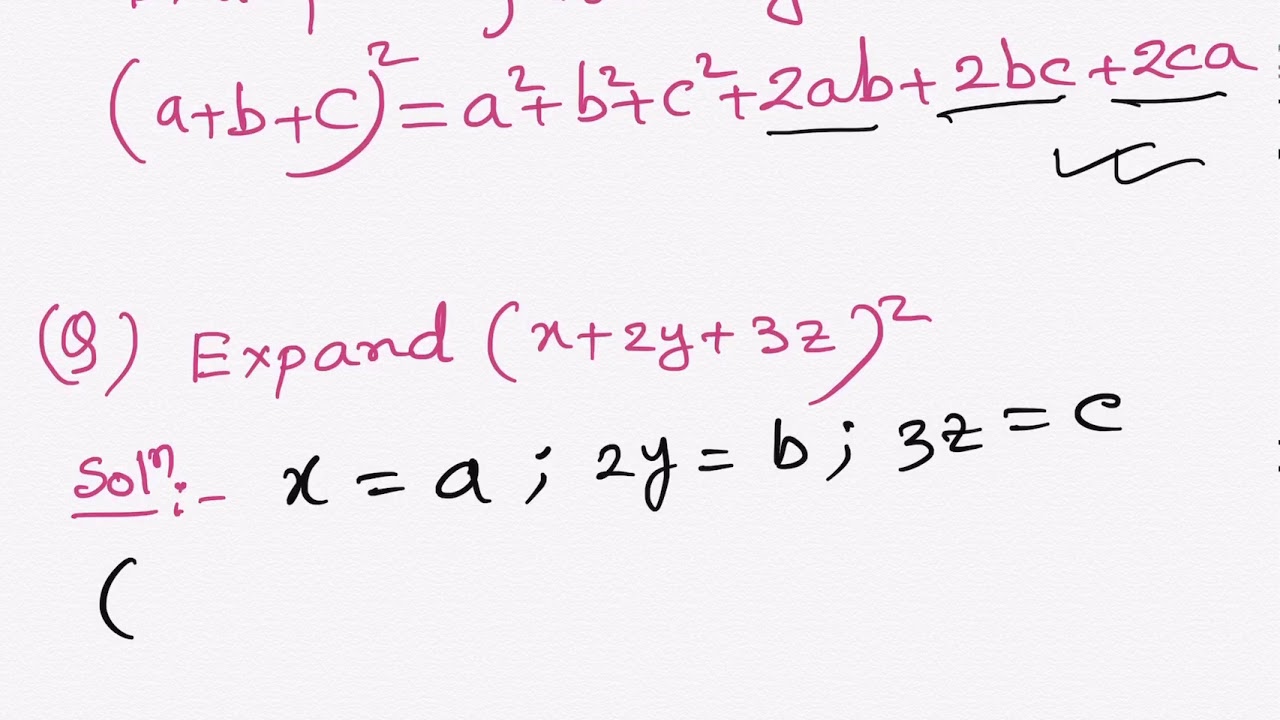 (a+b+c)²=a²+b²+c²+2ab+2bc+2ca
(Q) Expand (x+2y+3z)²
Solⁿ:- x=a; 2y=b; 3z=c
(